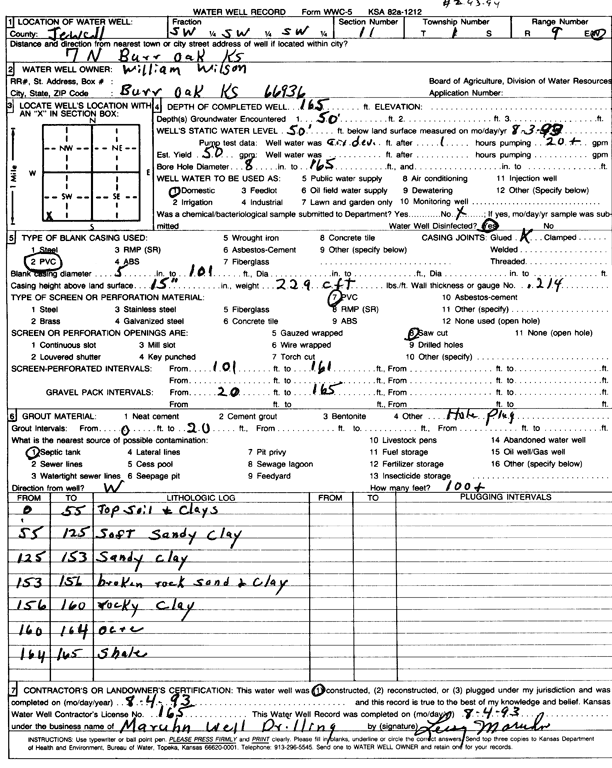 #24394
WATER WELL RECORD Form WWC-5 KSA 82a-1212
1 LOCATION OF WATER WELL: Fraction Section Number Township Number Range Number
County: Jewell SW ¼ SW ¼ SW ¼ 11 T 1 S R 9 E/W
Distance and direction from nearest town or city street address of well if located within city?
7 N Burr Oak Ks
2 WATER WELL OWNER: William Wilson
RR#, St. Address, Box # : Board of Agriculture, Division of Water Resources
City, State, ZIP Code : Burr Oak Ks 66936 Application Number:
3 LOCATE WELL'S LOCATION WITH AN "X" IN SECTION BOX:
N
NW NE
W E
SW SE
X
S
1 Mile
4 DEPTH OF COMPLETED WELL 165 ft. ELEVATION:
Depth(s) Groundwater Encountered 1. 50' ft. 2. ft. 3. ft.
WELL'S STATIC WATER LEVEL 50' ft. below land surface measured on mo/day/yr 8-3-93
Pump test data: Well water was air dev. ft. after 1 hours pumping 20+ gpm
Est. Yield 50 gpm: Well water was ft. after hours pumping gpm
Bore Hole Diameter 8 in. to 165 ft., and in. to ft.
WELL WATER TO BE USED AS: 5 Public water supply 8 Air conditioning 11 Injection well
1 Domestic 3 Feedlot 6 Oil field water supply 9 Dewatering 12 Other (Specify below)
2 Irrigation 4 Industrial 7 Lawn and garden only 10 Monitoring well
Was a chemical/bacteriological sample submitted to Department? Yes No X ; If yes, mo/day/yr sample was submitted Water Well Disinfected? Yes No
5 TYPE OF BLANK CASING USED: 5 Wrought iron 8 Concrete tile CASING JOINTS: Glued X Clamped
1 Steel 3 RMP (SR) 6 Asbestos-Cement 9 Other (specify below) Welded
2 PVC 4 ABS 7 Fiberglass Threaded
Blank casing diameter 5 in. to 101 ft., Dia in. to ft., Dia in. to ft.
Casing height above land surface 15" in., weight 229 cft lbs./ft. Wall thickness or gauge No. .214
TYPE OF SCREEN OR PERFORATION MATERIAL: 7 PVC 10 Asbestos-cement
1 Steel 3 Stainless steel 5 Fiberglass 8 RMP (SR) 11 Other (specify)
2 Brass 4 Galvanized steel 6 Concrete tile 9 ABS 12 None used (open hole)
SCREEN OR PERFORATION OPENINGS ARE: 5 Gauzed wrapped 8 Saw cut 11 None (open hole)
1 Continuous slot 3 Mill slot 6 Wire wrapped 9 Drilled holes
2 Louvered shutter 4 Key punched 7 Torch cut 10 Other (specify)
SCREEN-PERFORATED INTERVALS: From 101 ft. to 161 ft., From ft. to ft.
From ft. to ft., From ft. to ft.
GRAVEL PACK INTERVALS: From 20 ft. to 165 ft., From ft. to ft.
From ft. to ft., From ft. to ft.
6 GROUT MATERIAL: 1 Neat cement 2 Cement grout 3 Bentonite 4 Other Hole Plug
Grout Intervals: From 0 ft. to 20 ft., From ft. to ft., From ft. to ft.
What is the nearest source of possible contamination: 10 Livestock pens 14 Abandoned water well
1 Septic tank 4 Lateral lines 7 Pit privy 11 Fuel storage 15 Oil well/Gas well
2 Sewer lines 5 Cess pool 8 Sewage lagoon 12 Fertilizer storage 16 Other (specify below)
3 Watertight sewer lines 6 Seepage pit 9 Feedyard 13 Insecticide storage
Direction from well? W How many feet? 100+
FROM TO LITHOLOGIC LOG FROM TO PLUGGING INTERVALS
0 55 Top Soil & Clays
55 125 Soft Sandy Clay
125 153 Sandy Clay
153 156 broken rock sand & Clay
156 160 rocky Clay
160 164 ocre
164 165 Shale
7 CONTRACTOR'S OR LANDOWNER'S CERTIFICATION: This water well was (1) constructed, (2) reconstructed, or (3) plugged under my jurisdiction and was
completed on (mo/day/year) 8-4-93 and this record is true to the best of my knowledge and belief. Kansas
Water Well Contractor's License No. 165 This Water Well Record was completed on (mo/day/yr) 8-4-93
under the business name of Maruhn Well Drilling by (signature) Maruhn
INSTRUCTIONS: Use typewriter or ball point pen. PLEASE PRESS FIRMLY and PRINT clearly. Please fill in blanks, underline or circle the correct answers. Send top three copies to Kansas Department
of Health and Environment, Bureau of Water, Topeka, Kansas 66620-0001. Telephone: 913-296-5545. Send one to WATER WELL OWNER and retain one for your records.